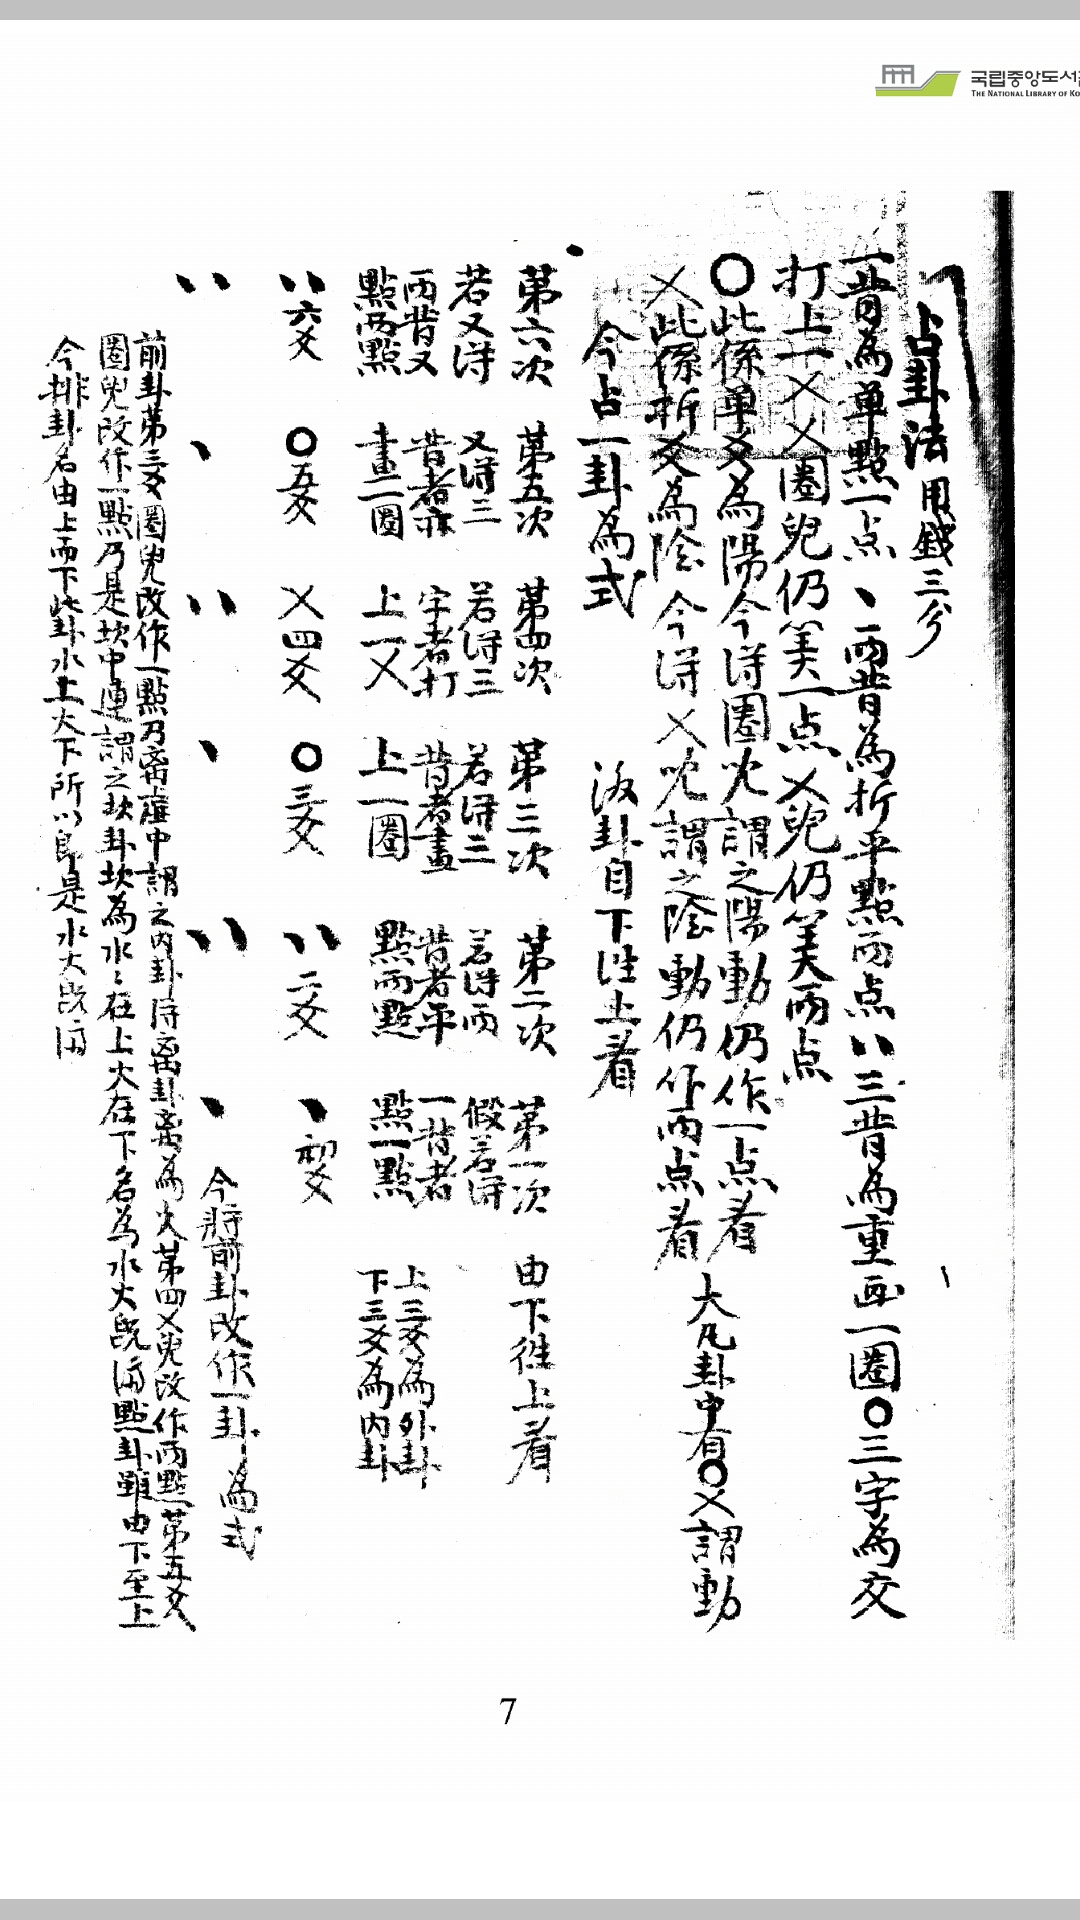 국립중앙도서
THE NATIONAL LIBRARY OF KO
占卦法 用錢三分
一背為单點一点 丶 兩背為折平點兩点 丶丶 三背為重画一圈〇三字為交
打上一乂乂圈兒仍筭一点乂兒仍筭兩点
〇此係単爻為陽今得圈兒謂之陽動仍作一点看
乂此係折爻為陰今得乂兒謂之陰動仍作兩点看
大凡卦中有〇乂謂動
今占一卦為式
泒卦自下往上看
第六次 第五次 第四次 第三次 第二次 第一次 由下徃上看
若又得兩背又點兩點
又得三背者亦畫一圈
若得三字者打上一乂
若得三背者畫上一圈
若得兩背者平點兩點
假若得一背者點一點
上三爻為外卦
下三爻為内卦
丶丶六爻 〇五爻 乂四爻 〇三爻 丶丶二爻 丶初爻
丶丶 丶 丶丶 丶 丶丶 丶
今將前卦改作一卦為式
前卦第三爻圈兒改作一點乃离虛中謂之内卦得离卦离為火第四乂兒改作兩點第五爻
圈兒改作一點乃是坎中連謂之坎卦坎為水〻在上火在下名為水火既濟點卦雖由下至上
今排卦名由上而下此卦水上火下所以即是水火既濟
7